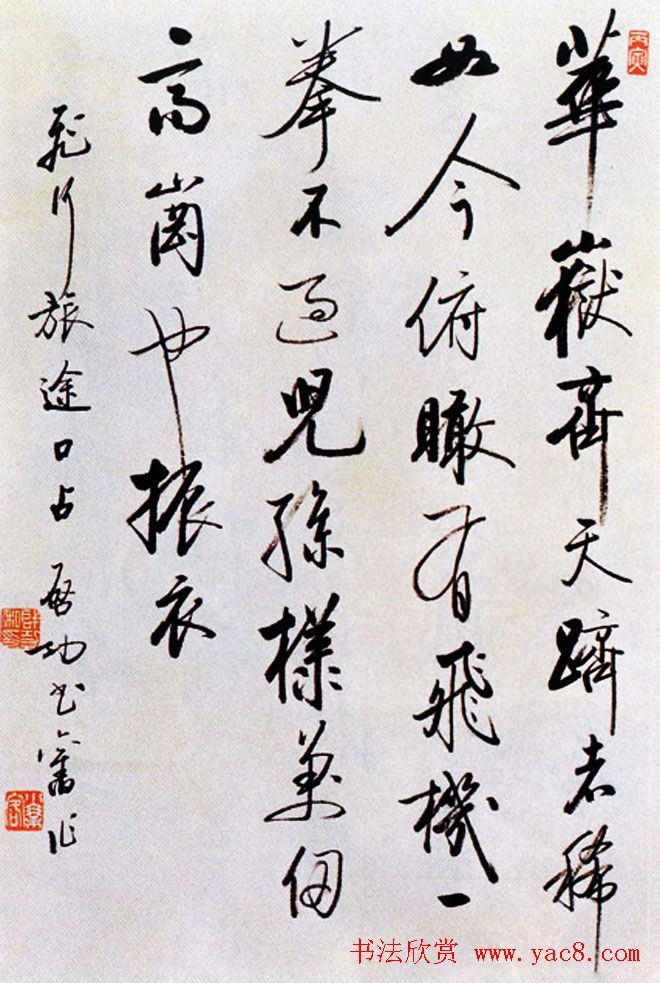 丙寅
華嶽齊天躋者稀
如今俯瞰有飛機一
拳不過兒孫樣萬仞
高崗也振衣
飛行旅途口占 啓功書舊作
书法欣赏 www.yac8.com